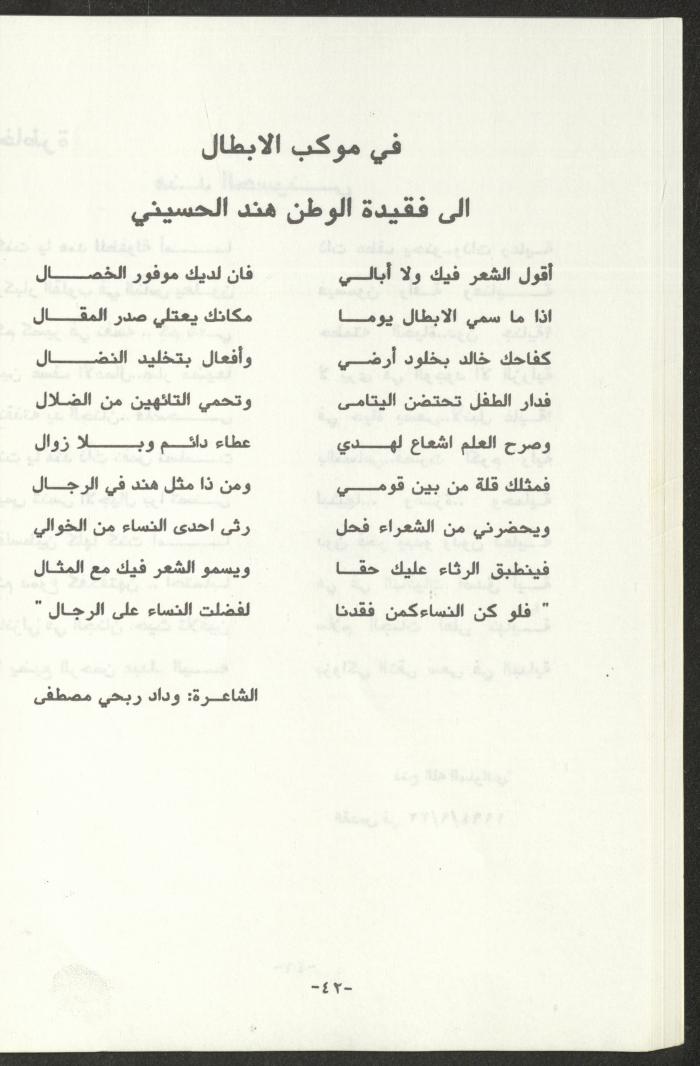 في موكب الابطال
الى فقيدة الوطن هند الحسيني
أقول الشعر فيك ولا أبالــي فان لديك موفور الخصــــال
اذا ما سمي الابطال يومــا مكانك يعتلي صدر المقــــال
كفاحك خالد بخلود أرضــي وأفعال بتخليد النضـــــال
فدار الطفل تحتضن اليتامـى وتحمي التائهين من الضلال
وصرح العلم اشعاع لهــدي عطاء دائــم وبـــــلا زوال
فمثلك قلة من بين قومــــي ومن ذا مثل هند في الرجـال
ويحضرني من الشعراء فحل رثى احدى النساء من الخوالي
فينطبق الرثاء عليك حقــا ويسمو الشعر فيك مع المثـال
" فلو كن النساءكمن فقدنا لفضلت النساء على الرجال "
الشاعــرة: وداد ربحي مصطفى
-٤٢-